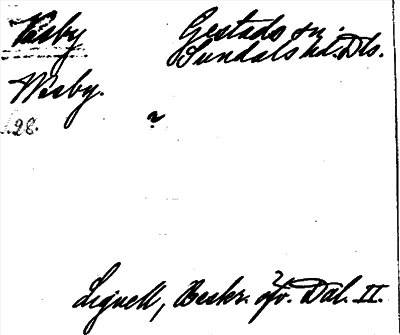 Väsby Gestads sn.
Sundals hd. Dls.
Wesby.
28. ?
Lignell, Beskr. öfv. Dal. II.